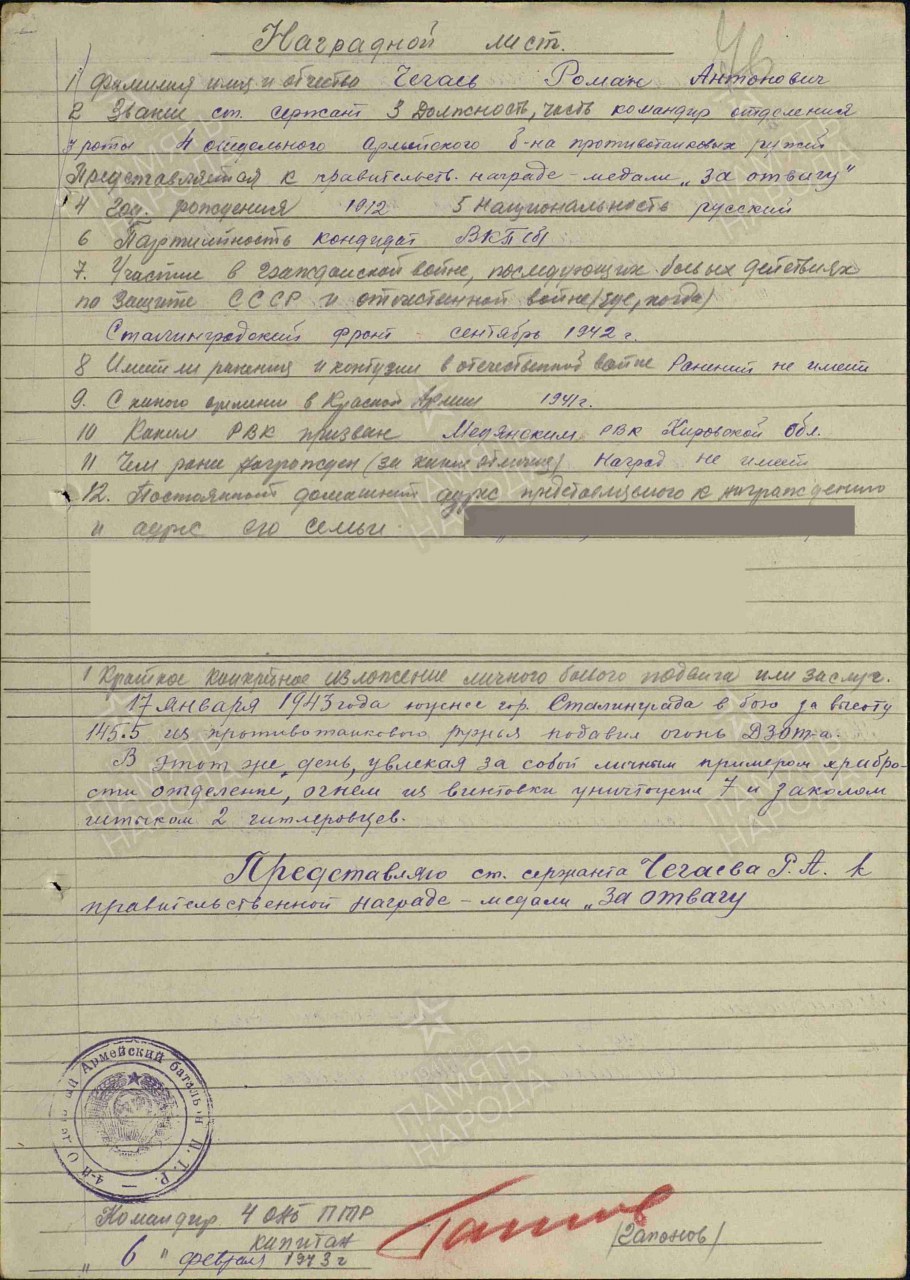 Наградной лист.
1 Фамилия имя и отчество Чегаев Роман Антонович
2 Звание ст. сержант 3 Должность, часть командир отделения
роты 4 отдельного Армейского б-на противотанковых ружей
Представляется к правительств. награде - медали „За отвагу"
4 Год. рождения 1912 5 Национальность русский
6 Партийность кондидат ВКП(б)
7. Участие в гражданской войне, последующих боевых действиях
по защите СССР и отечественной войне (где, когда)
Сталинградский фронт - сентябрь 1942 г.
8 Имеет ли ранения и контузии в отечественной войне Ранений не имеет
9. С какого времени в Красной Армии 1941г.
10 Каким РВК призван Медянским РВК Кировской обл.
11 Чем ранее награжден (за какие отличия) Наград не имеет
12. Постоянный домашний адрес представляемого к награждению
и адрес его семьи
1 Краткое конкретное изложение личного боевого подвига или заслуг.
17 января 1943 года южнее гор. Сталинграда в бою за высоту
145.5 из противотанкового ружья подавил огонь Дзота.
В этот же день, увлекая за собой личным примером храбро-
сти отделение, огнем из винтовки уничтожил 7 и заколол
штыком 2 гитлеровцев.
Представляю ст. сержанта Чегаева Р.А. к
правительственной награде - медали „За отвагу
4-й Армейский батальон П.Т.Р.
Командир 4 ОАБ ПТР
капитан (Гапонов)
„ 6 " февраля 1943 г
ПАМЯТЬ
НАРОДА